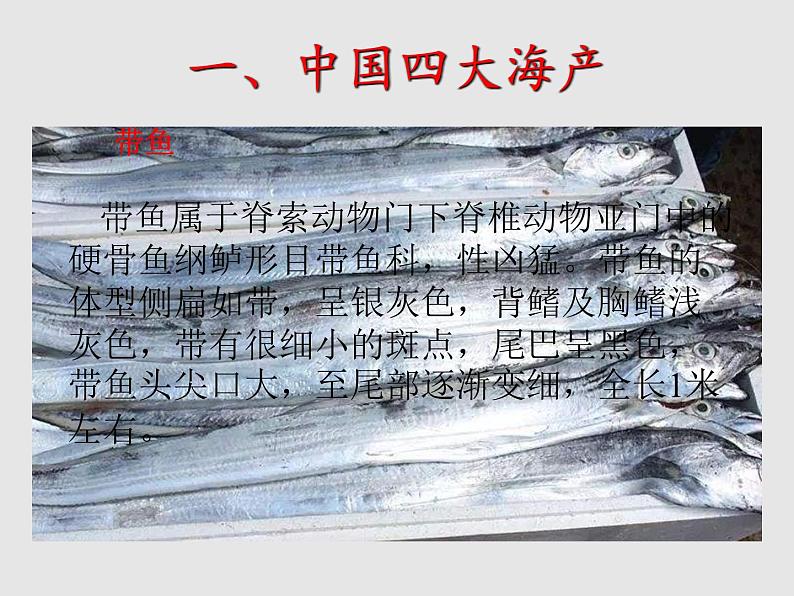 一、中国四大海产
带鱼
带鱼属于脊索动物门下脊椎动物亚门中的
硬骨鱼纲鲈形目带鱼科，性凶猛。带鱼的
体型侧扁如带，呈银灰色，背鳍及胸鳍浅
灰色，带有很细小的斑点，尾巴呈黑色，
带鱼头尖口大，至尾部逐渐变细，全长1米
左右。